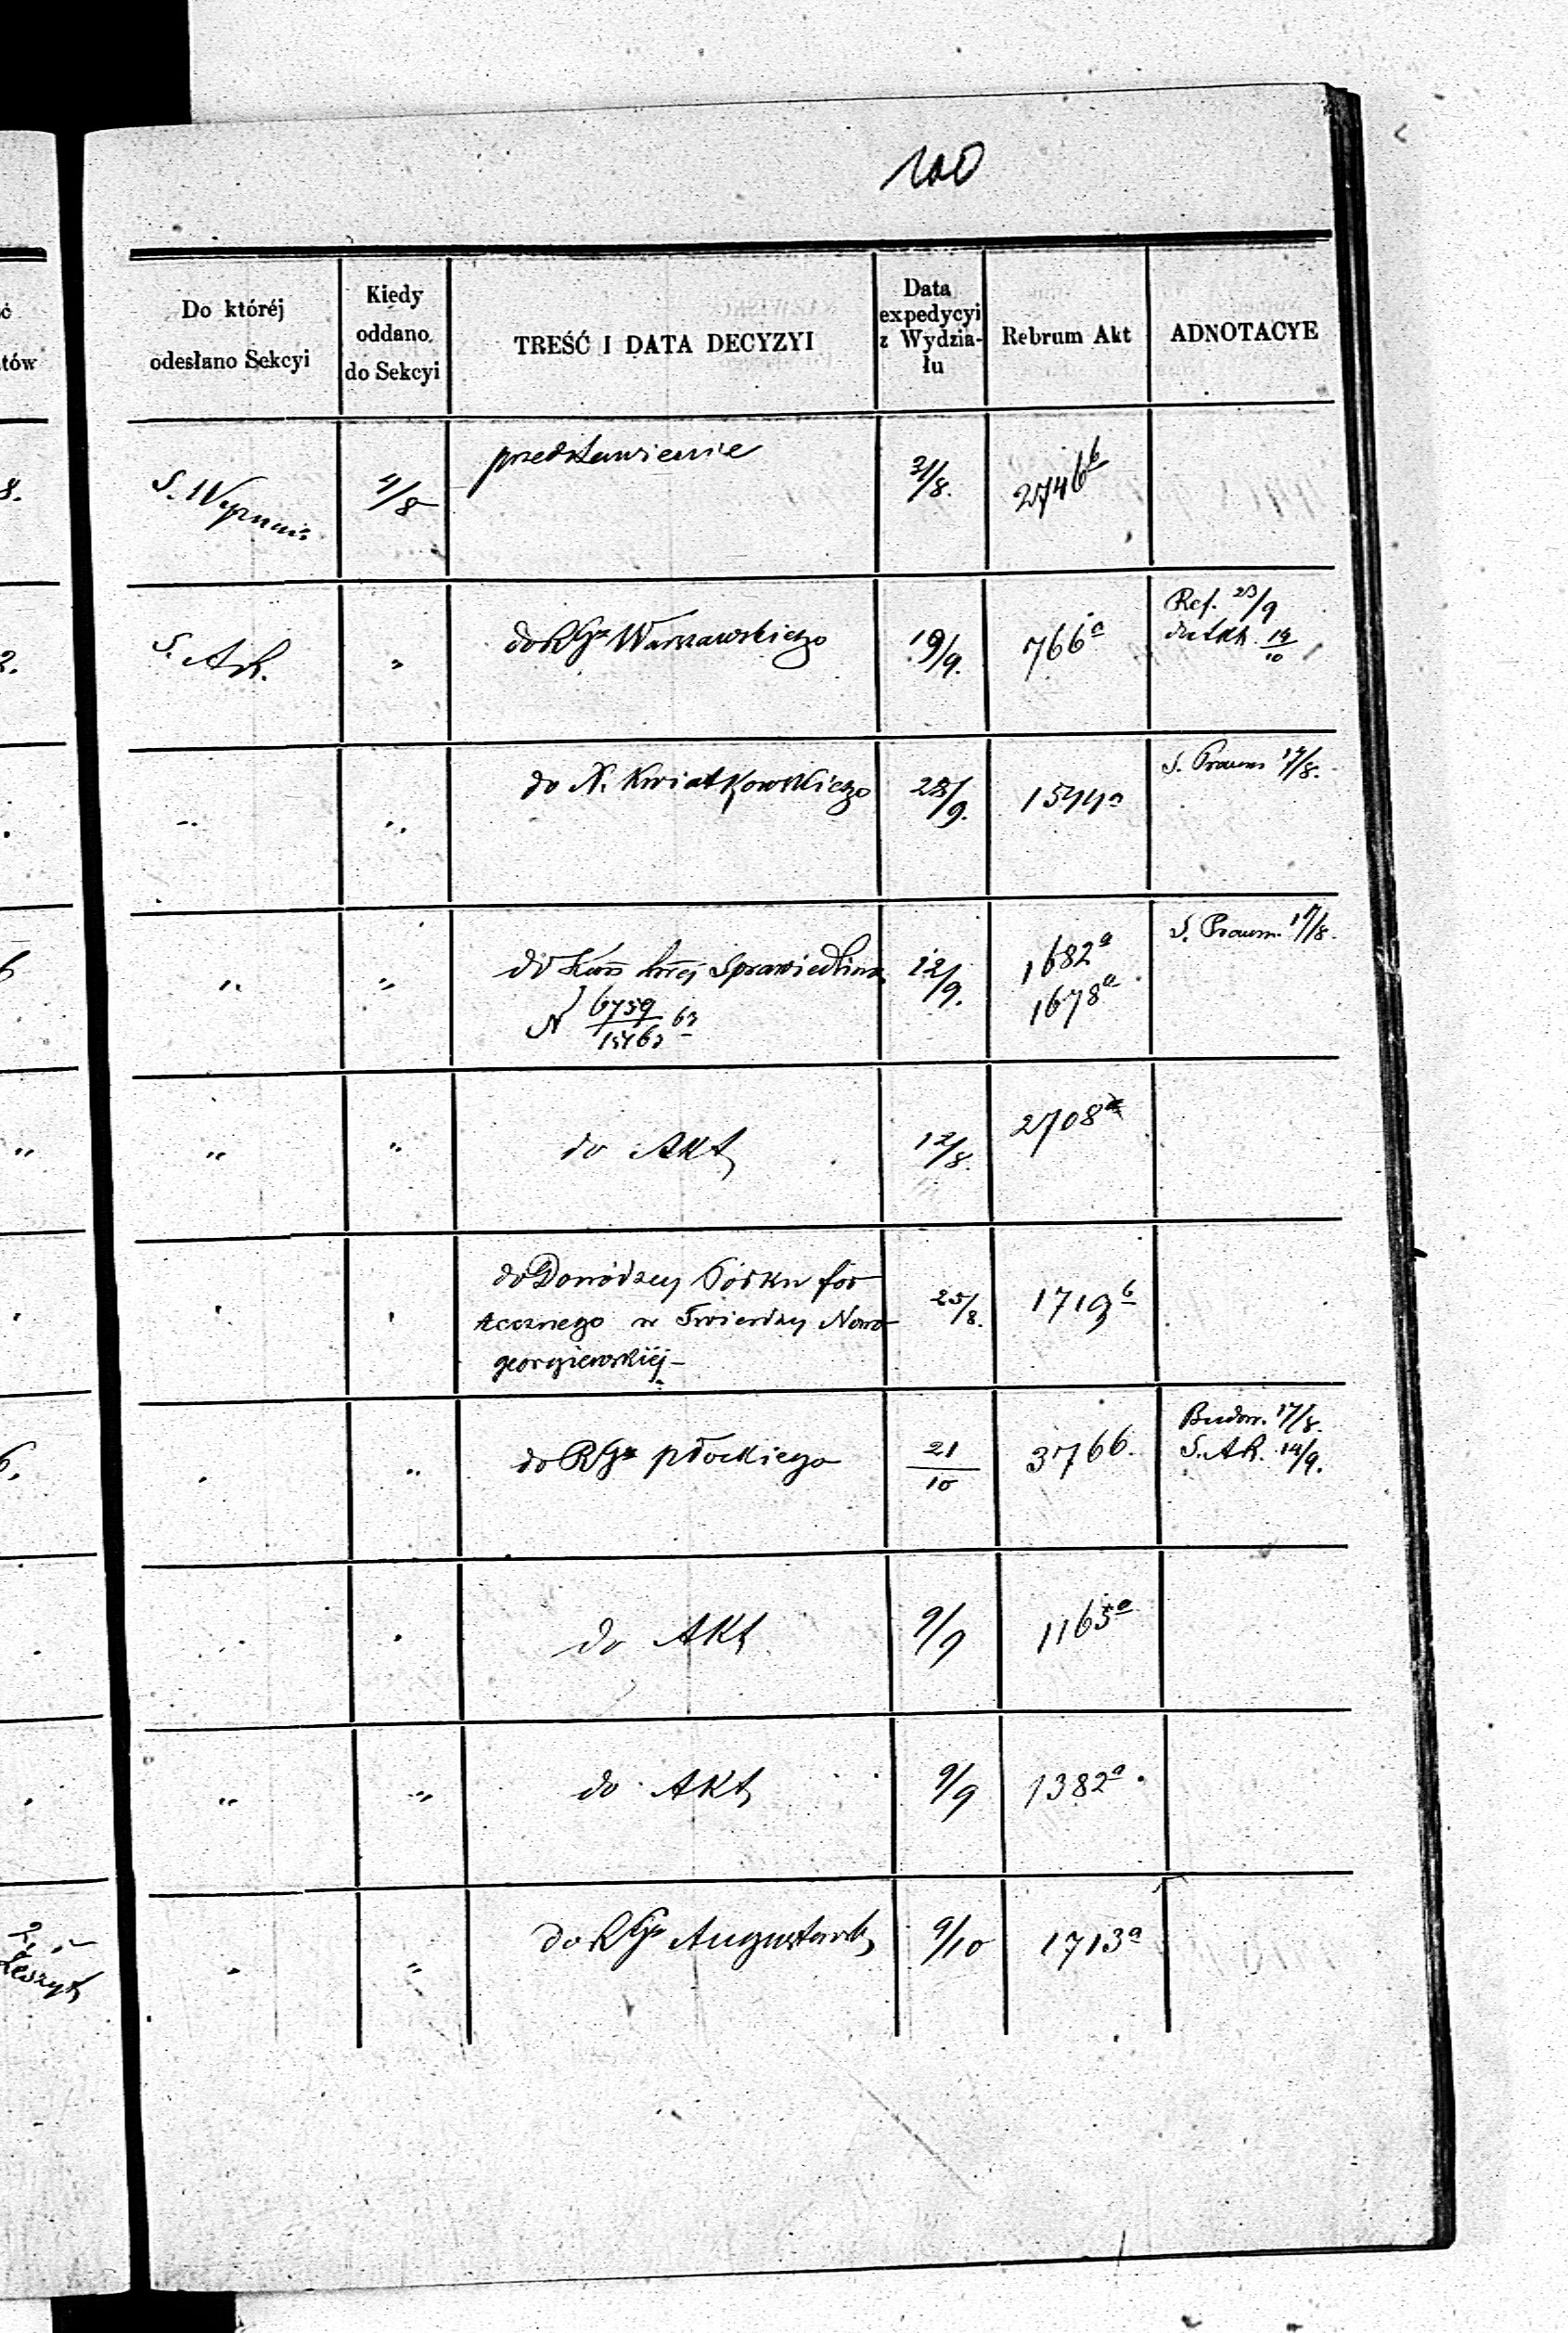 100
Do któréj
odesłano Sekcyi
Kiedy
oddano
do Sekcyi
TREŚĆ I DATA DECYZYI
Data
expedycyi
z Wydzia-
łu
Rebrum Akt
ADNOTACYE
tów
8.
S.
4/8
przedstawienie
2/8.
2746 b
2.
S. Ak.
"
do RGu Warszawskiego
19/9.
766 a
Ref. 23/9
19/10
"
"
do N. Kwiatkowskiego
28/9.
1544 a
S. 14/8.
6
"
"
do Sprawiedliw
N 6759
12/9.
1682 a
1678 a
S. 17/8.
"
"
"
do Akt
12/8.
2708 a
do Dowódzcy for
tecznego w Twierdzy Nowo
georgiewskiéj
25/8.
1719 b
6.
"
do RGu płockiego
21/10
3766.
Budow. 17/8.
S. Ak. 14/9.
do Akt
9/9
1165 a
"
"
do Akt
9/9
1382 a
Zeszyt
"
do RGu Augustowsk
9/10
1713 a